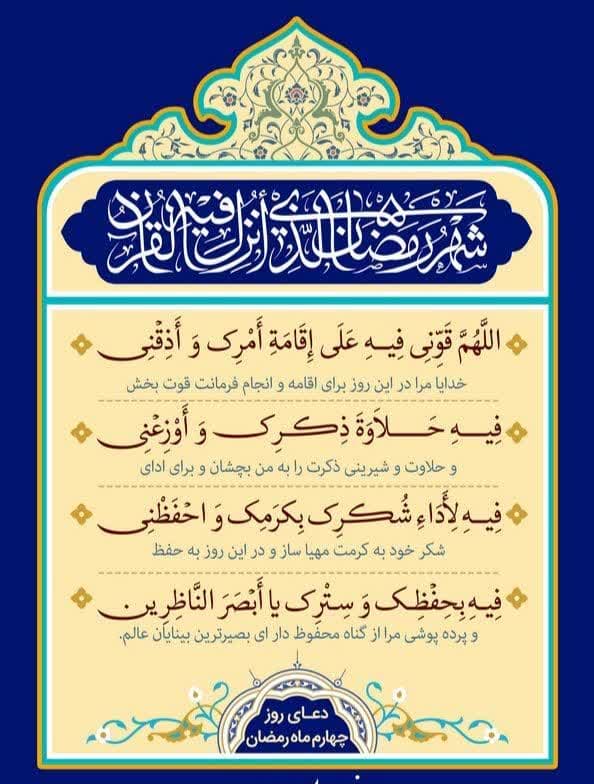 شهر رمضان الذي أنزل فيه القرآن
اللَّهُمَّ قَوِّنِی فِیـهِ عَلَی إِقَامَةِ أَمْرِک وَ أَذِقْنِی
خدایا مرا در این روز برای اقامه و انجام فرمانت قوت بخش
فِیـهِ حَـلَاوَةَ ذِکـرِک وَ أَوْزِعْنِی
و حلاوت و شیرینی ذکرت را به من بچشان و برای ادای
فِیـهِ لِأَدَاءِ شُـکـرِک بِکَرَمِک وَ احْفَظْنِی
شکر خود به کرمت مهیا ساز و در این روز به حفظ
فِیهِ بِحِفْظِک وَ سِتْرِک یا أَبْصَرَ النَّاظِرِین
و پرده پوشی مرا از گناه محفوظ دار ای بصیرترین بینایان عالم.
دعـای روز
چهارم ماه رمضان